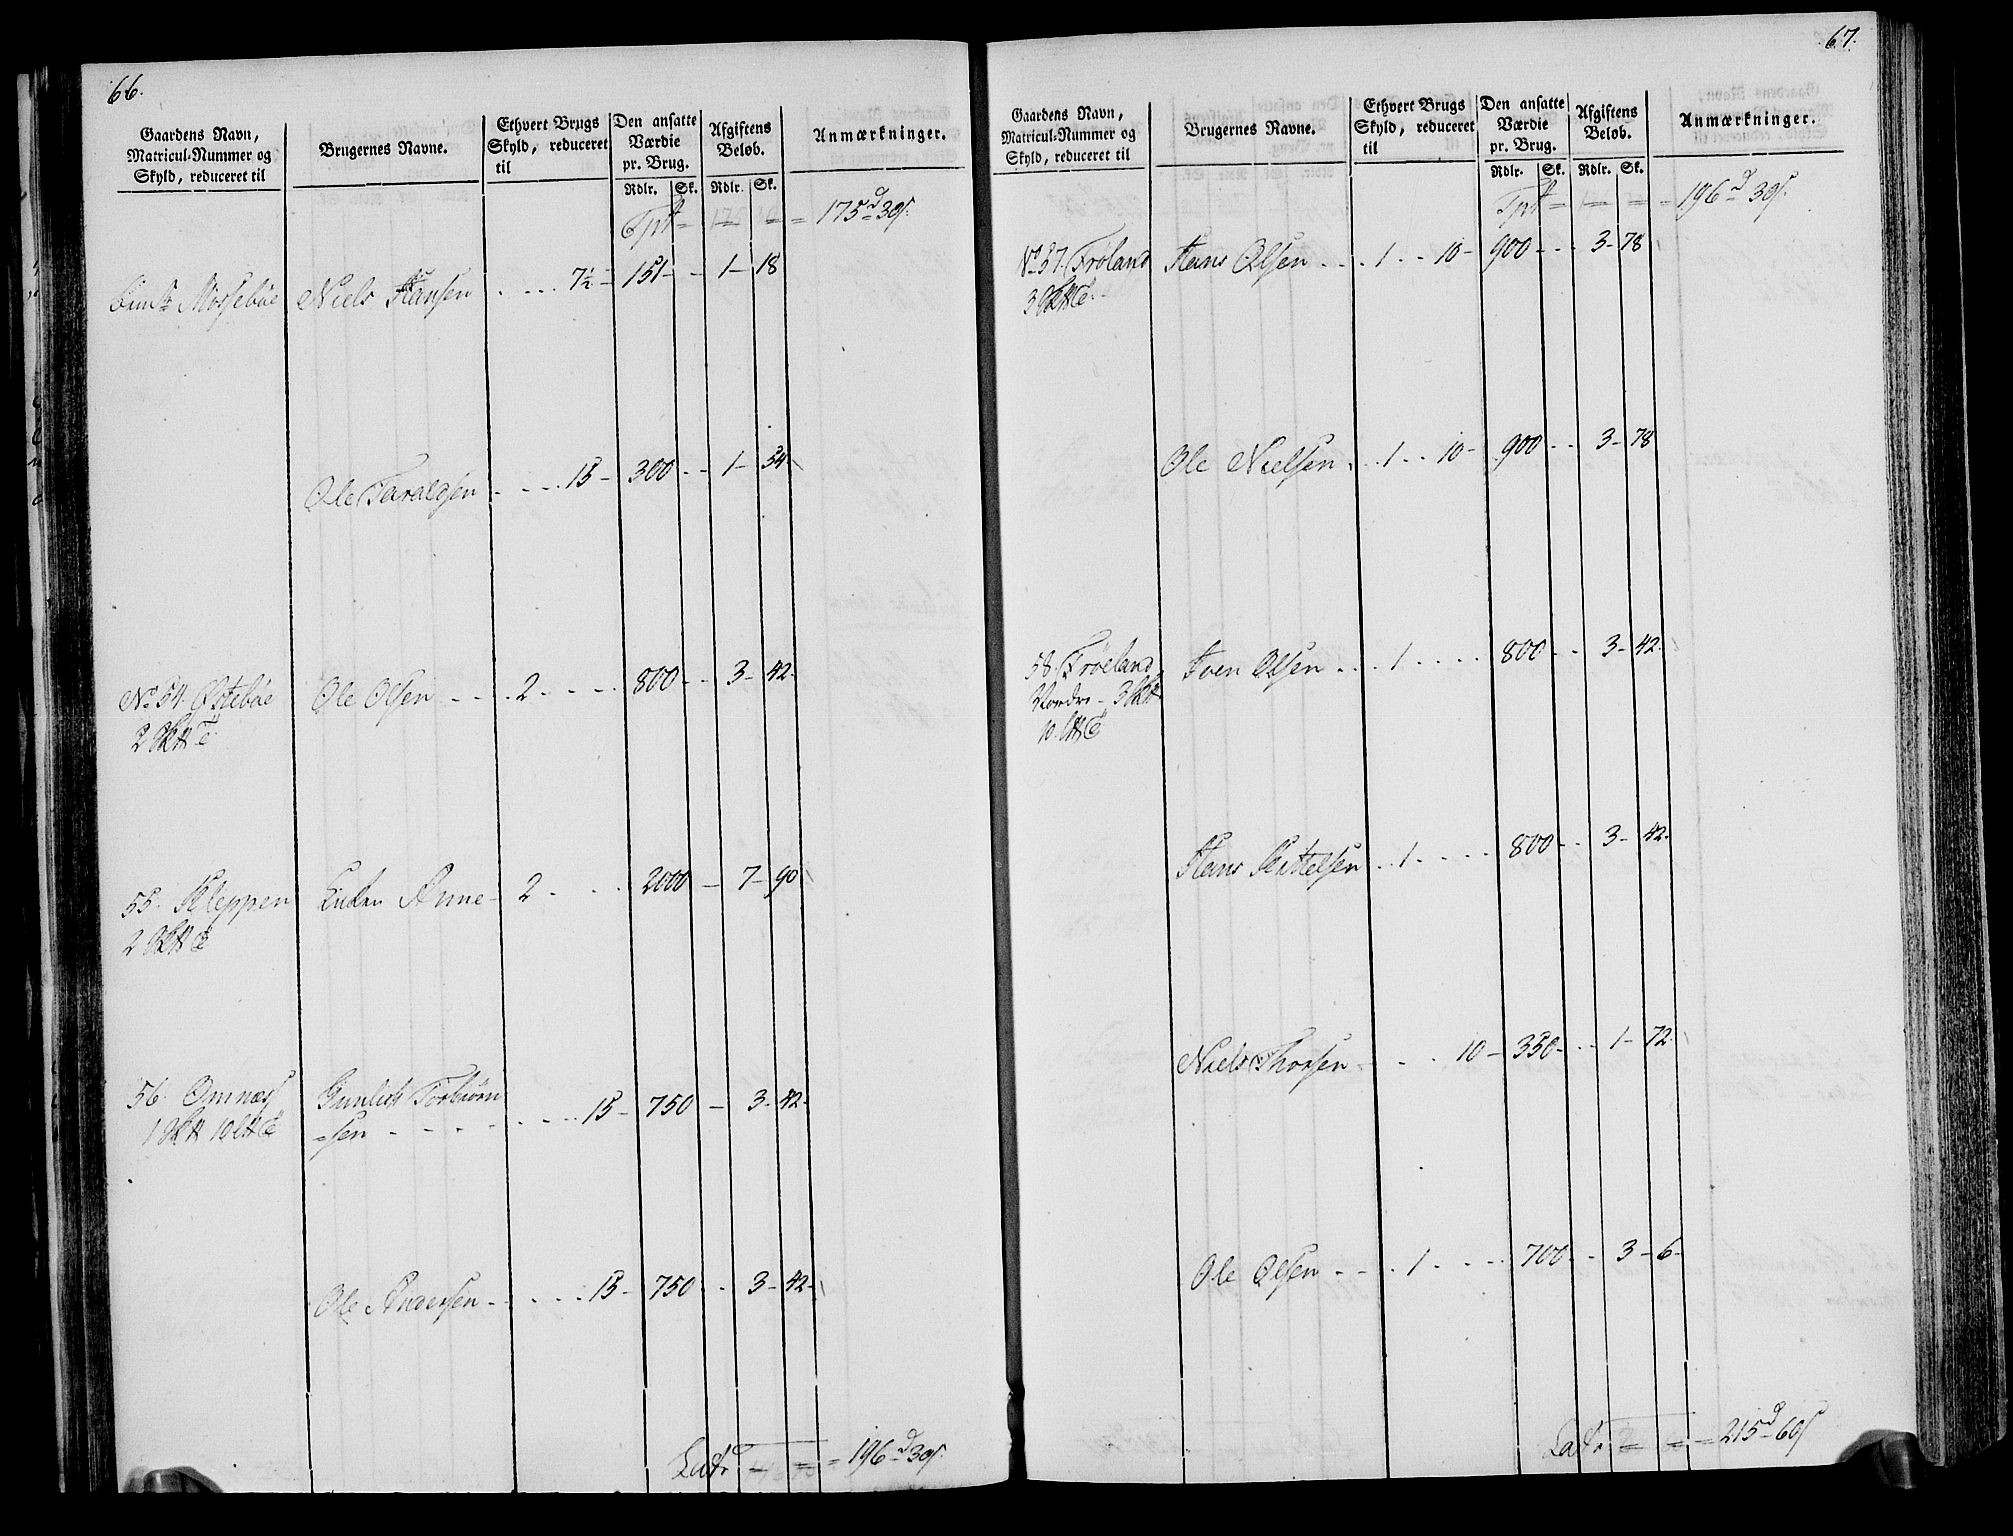 66.
Gaardens Navn,
Matricul-Nummer og
Skyld, reduceret til
Brugernes Navne.
Ethvert Brugs
Skyld, reduceret
til
Den ansatte
Værdie
pr. Brug.
Afgiftens
Beløb.
Anmærkninger.
Rdlr. Sk. Rdlr. Sk.
Tpt = 175 d 30 s.
Mossebøe Niels Hansen . . . . 7½ - 151 - - 1 - 18
Ole Taraldsen - . . . . 15 - 300 - - 1 - 54
No 54. Østebøe Ole Olsen - - . . 2 . . . . . 800 - - 3 - 42.
2
55. Kleppen Enken Anne - 2 . . . . 2000 - 7 - 90
2
56. Omnæs Gunleck Torbiørn
1 10 =sen - - - - - . . . . 15 - 750 - 3 - 42.
Ole Andersen - . . . . . 15 - 750 - - 3 - 42 -
Lat. = 196 d 30 s.
67.
Gaardens Navn,
Matricul-Nummer og
Skyld, reduceret til
Brugernes Navne.
Ethvert Brugs
Skyld, reduceret
til
Den ansatte
Værdie
pr. Brug.
Afgiftens
Beløb.
Anmærkninger.
Rdlr. Sk. Rdlr. Sk.
Tpt = 196 d 30 s.
No 57. Frøland Hans Olsen . . . 1 . . 10 - 900 - - - 3 - 78
3
Ole Nielsen . . . 1 . . 10 - 900 - - 3 - 78
58. Frøeland Sven Olsen . . . 1 . . . . . 800 - - 3 - 42.
Nordre - 3
10.
Hans Kittelsen . . 1 . . . . . 800 - - 3 - 42.
Niels Thorsen - . . . 10 - 350 - . - 1 - 72
Ole Olsen - - . . 1 . - . . . 700 - - 3 - 6 -
Lat. = 215 d 60 s